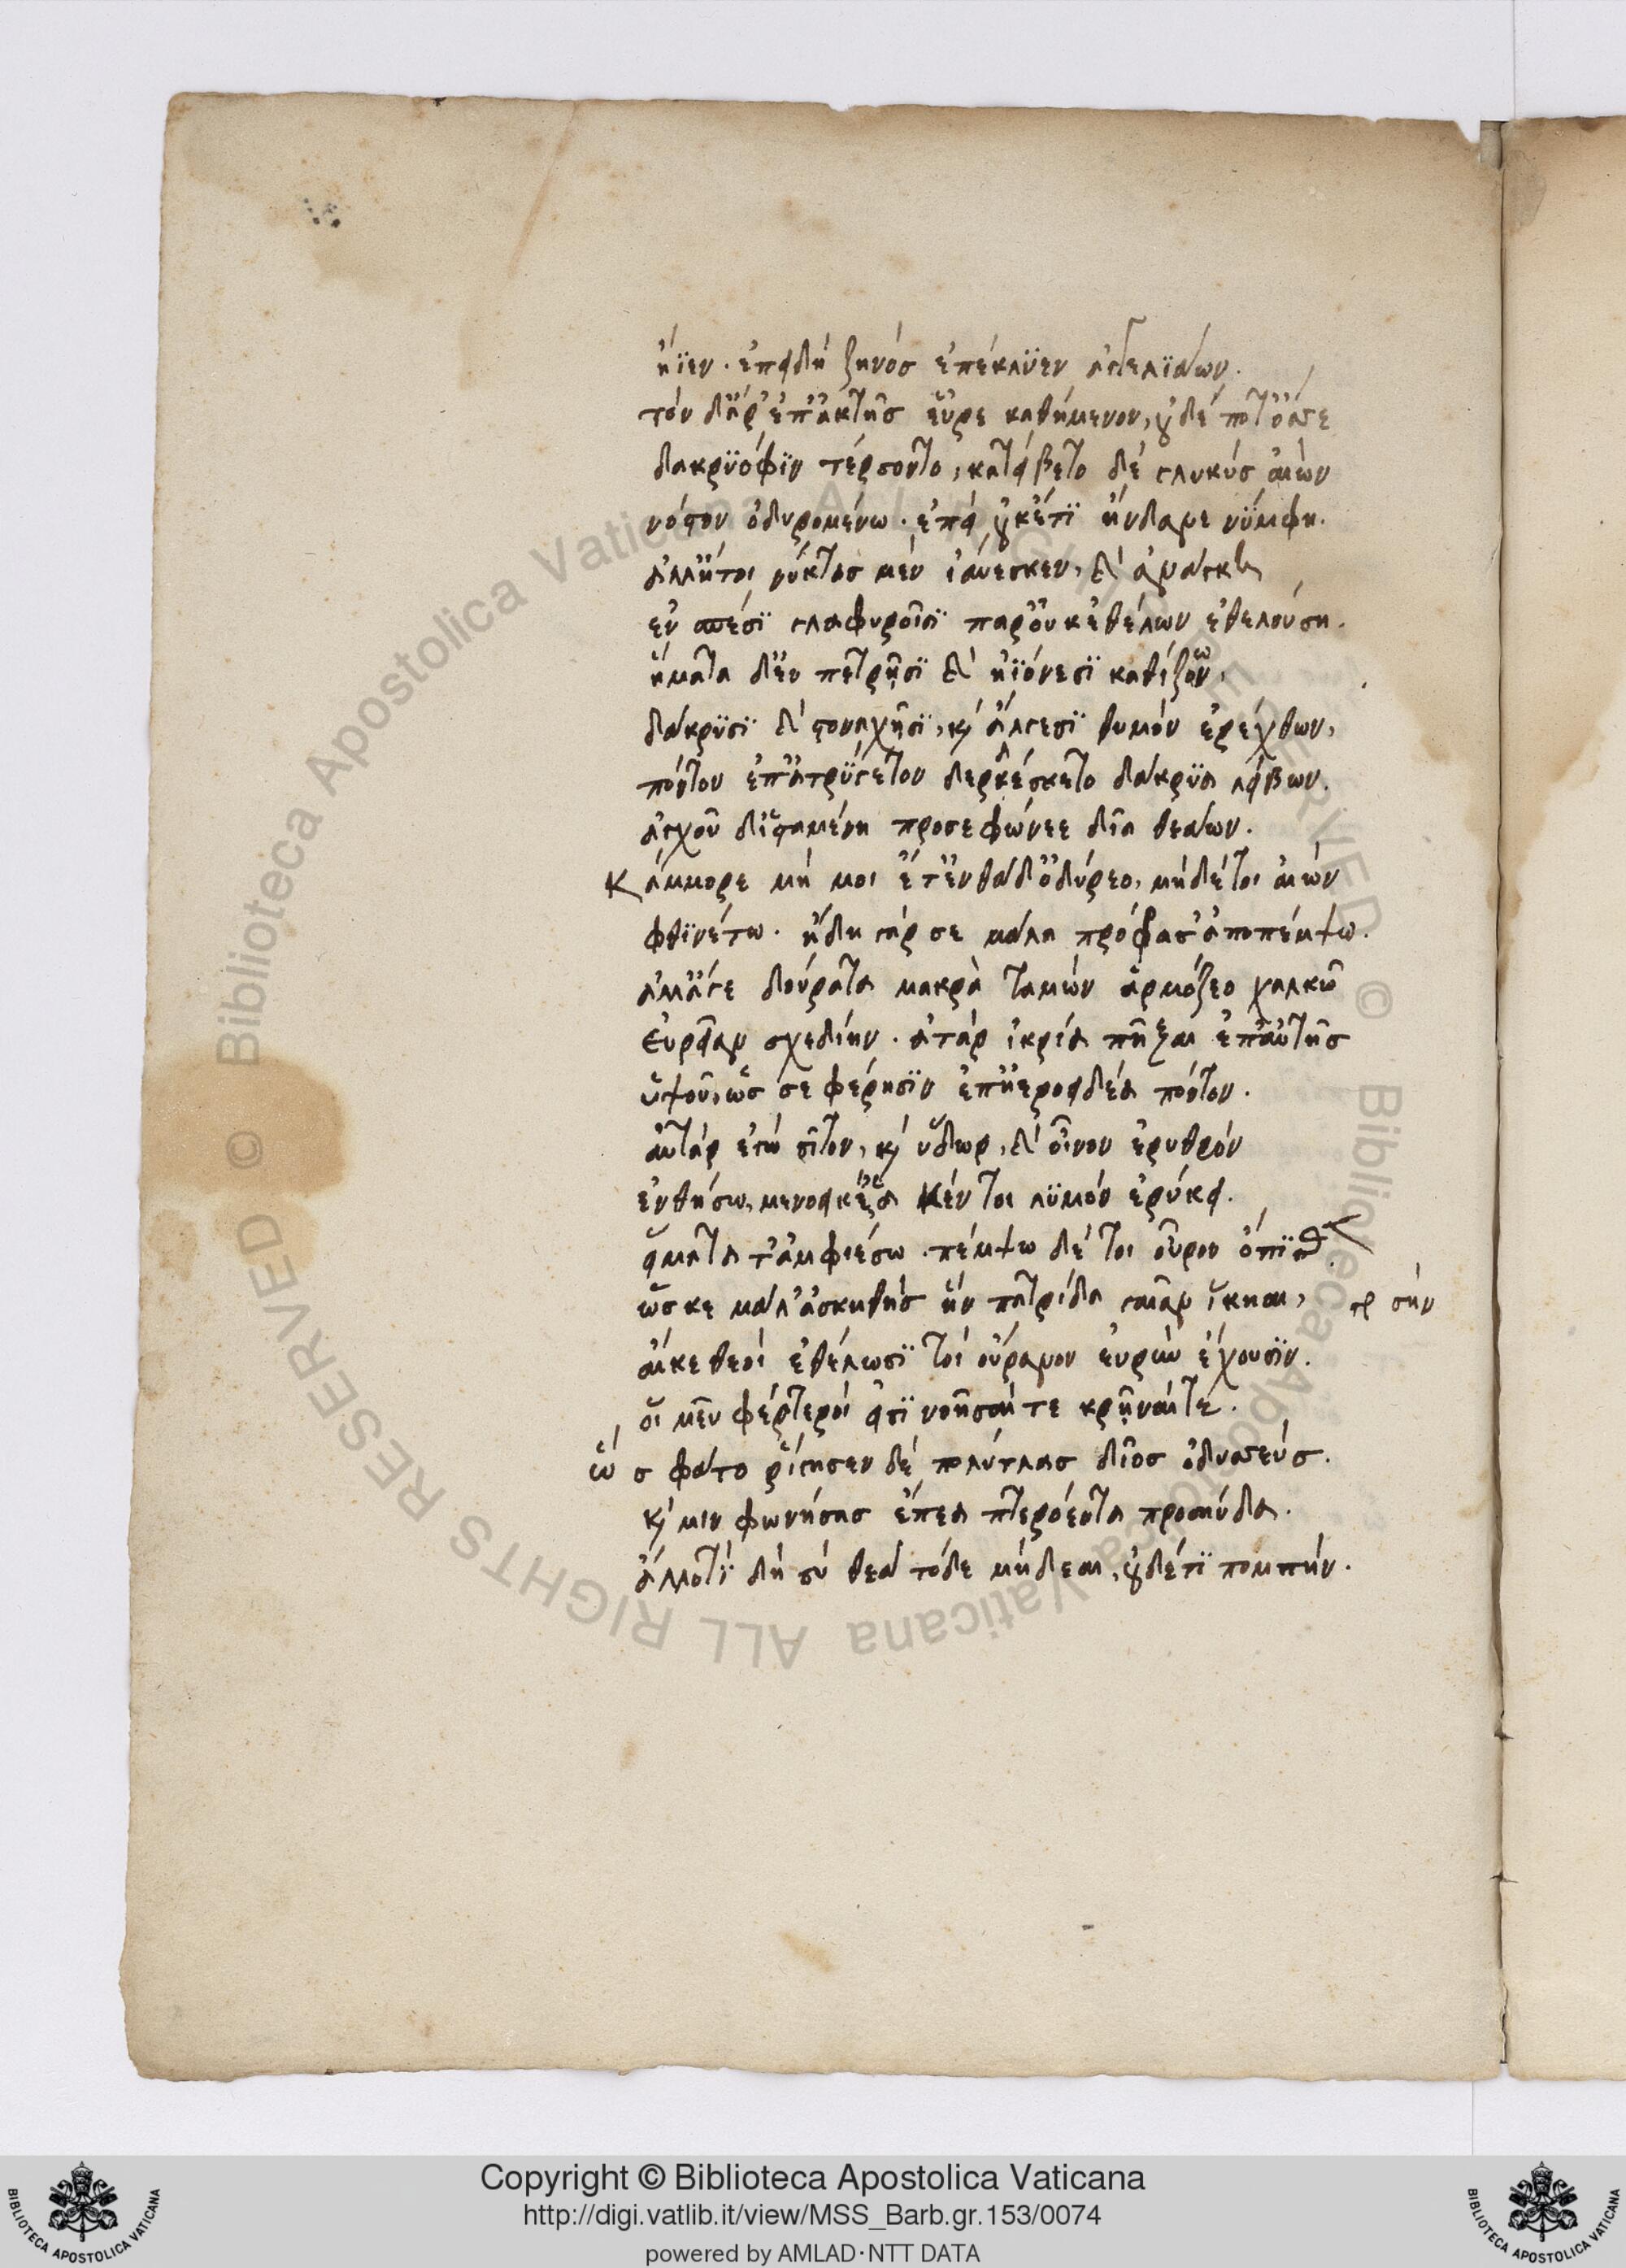 ἤϊεν. ἐπειδὴ ζηνὸσ ἐπέκλϋεν ἀγγελϊάων.
τὸν δ'ἄρ' ἐπ' ἀκτῆσ εὗρε καθήμενον, οὐδέ ποτ' ὄσσε
δακρϋόφϊν τέρσοντο, κατείβετο δὲ γλυκὺσ αἰὼν
νόστον ὀδυρομένω. ἐπεὶ οὐκέτϊ ἥνδανε νύμφη.
ἀλλ' ἤτοι νύκτασ μὲν ἰαύεσκεν, καὶ ἀνάγκη
ἐν σπέσϊ γλαφυροῖσϊ παρ' οὐκ ἐθέλων ἐθελούση.
ἤματα δ' ἐν πέτρησϊ καὶ ἠϊόνεσϊ καθίζων,
δάκρϋσϊ καὶ στοναχῆσϊ, καὶ ἄλγεσϊ θυμὸν ἐρέχθων,
πόντον ἐπ' ἀτρύγετον δερκέσκετο δάκρϋα λείβων.
ἀγχοῦ δ' ἱσταμένη προσεφώνεε δῖα θεάων.
Κάμμορε μή μοι ἔτ' ἐνθάδ' ὀδύρεο, μὴδέ τοι αἰὼν
φθϊνέτω. ἤδη γάρ σε μάλα πρόφασσ' ἀποπέμψω.
ἀλλ' ἄγε δούρατα μακρὰ ταμὼν ἁρμόζεο χαλκῶ
Εὐρεῖαν σχεδίην. ἀτὰρ ἰκρία πῆξαι ἐπ' αὐτῆσ
ὑψοῦ, ὥσ σε φέρησϊν ἐπ' ἠεροειδέα πόντον.
αὐτὰρ ἐγὼ σῖτον, καὶ ὕδωρ, καὶ οἶνον ἐρυθρὸν
ἐνθήσω, μενοεικέα κέν τοι λϋμὸν ἐρύκει.
εἵματά τ' ἀμφιέσω. πέμψω δέ τοι οὖρον ὄπϊσθεν.
ὥσ κε μάλ' ἀσκηθὴσ ἣν πατρίδα γαῖαν ἵκηαι, γρ σὴν
αἴ κε θεοὶ ἐθέλωσϊ τοὶ οὐρανον εὐρὺν ἔχουσϊν.
οἵ μεν φέρτεροί εἰσϊ νοῆσαί τε κρῆναί τέ.
ὣσ φάτο ῥίγησεν δὲ πολύτλασ δῖοσ ὀδυσσεύσ.
καί μιν φωνήσασ ἔπεα πτερόεντα προσηύδα.
ἄλλοτϊ δὴ σὺ θεὰ τόδε μήδεαι, οὐδέτϊ πομπήν.
Copyright © Biblioteca Apostolica Vaticana
http://digi.vatlib.it/view/MSS_Barb.gr.153/0074
powered by AMLAD·NTT DATA